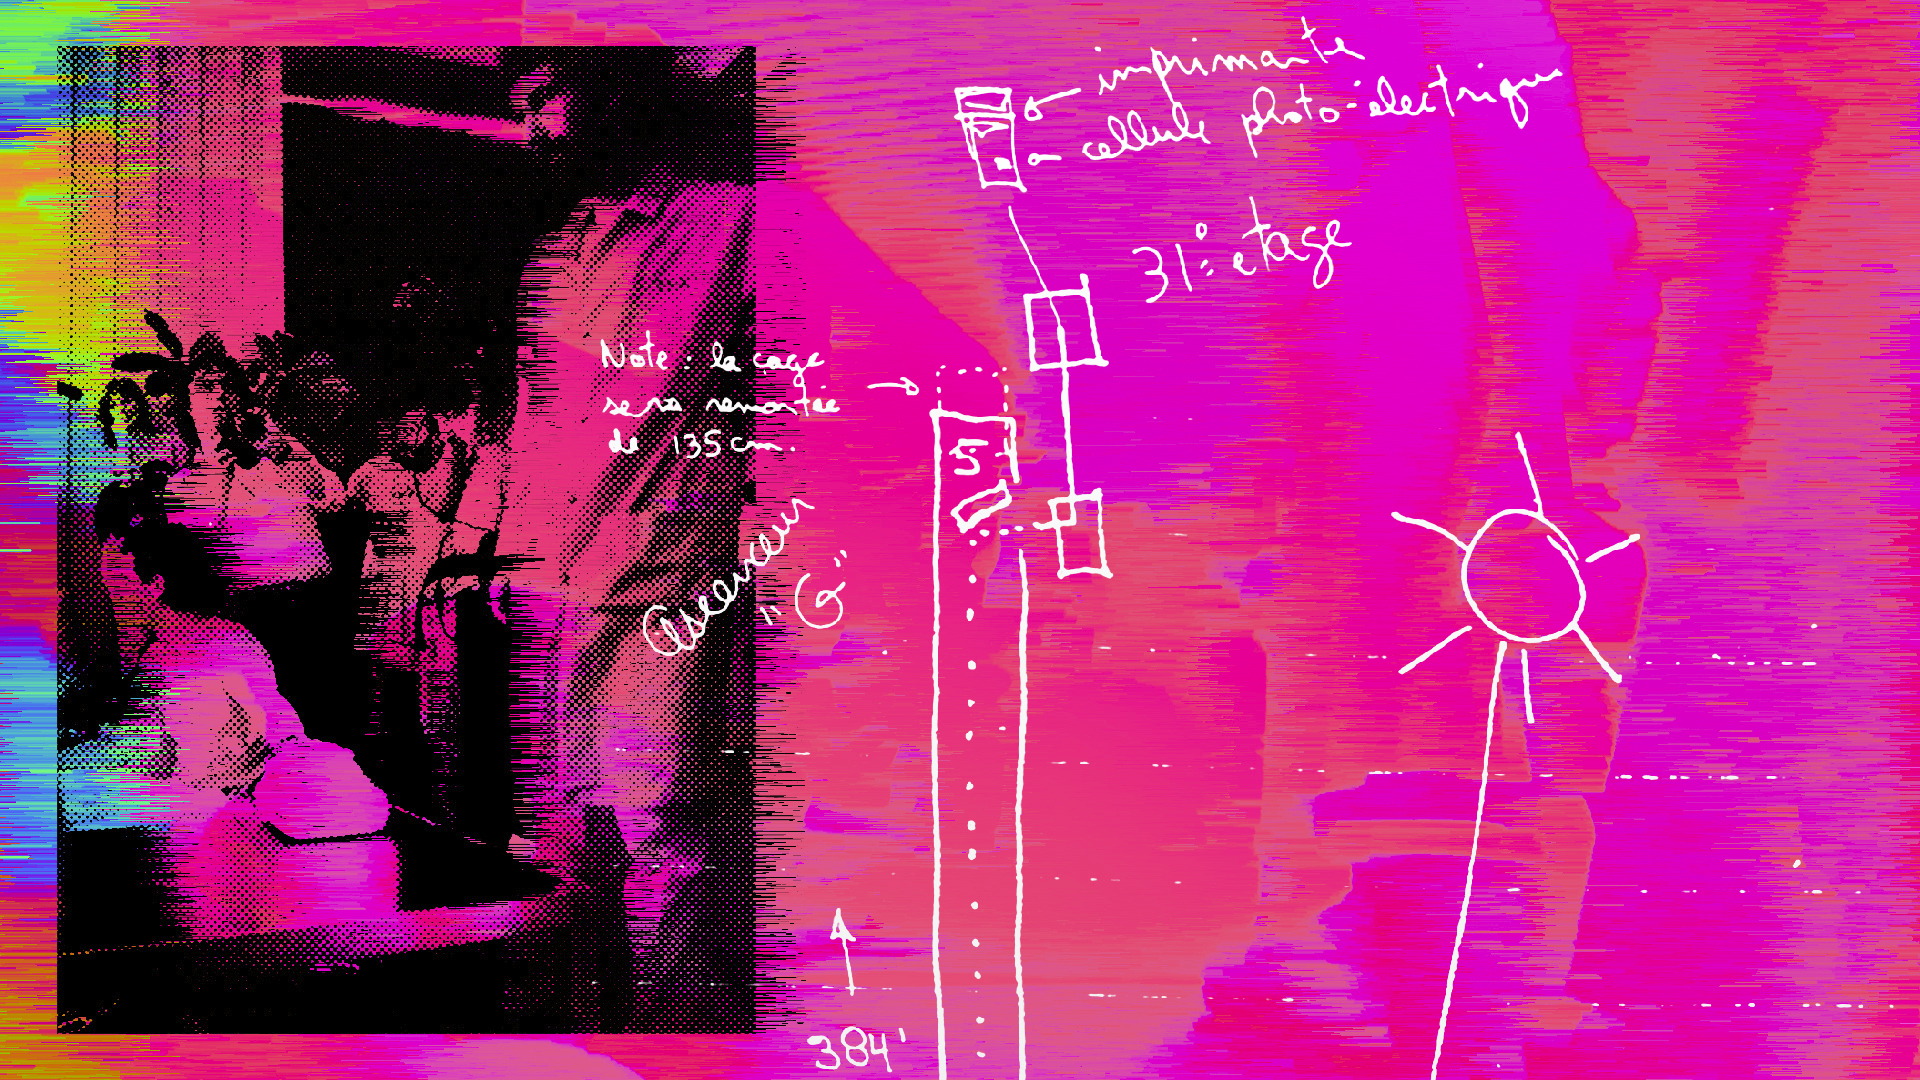 imprimante
cellule photo-électrique
31e étage
Note : la cage
sera remontée
de 135 cm.
5
Ascenseur
"G"
384'